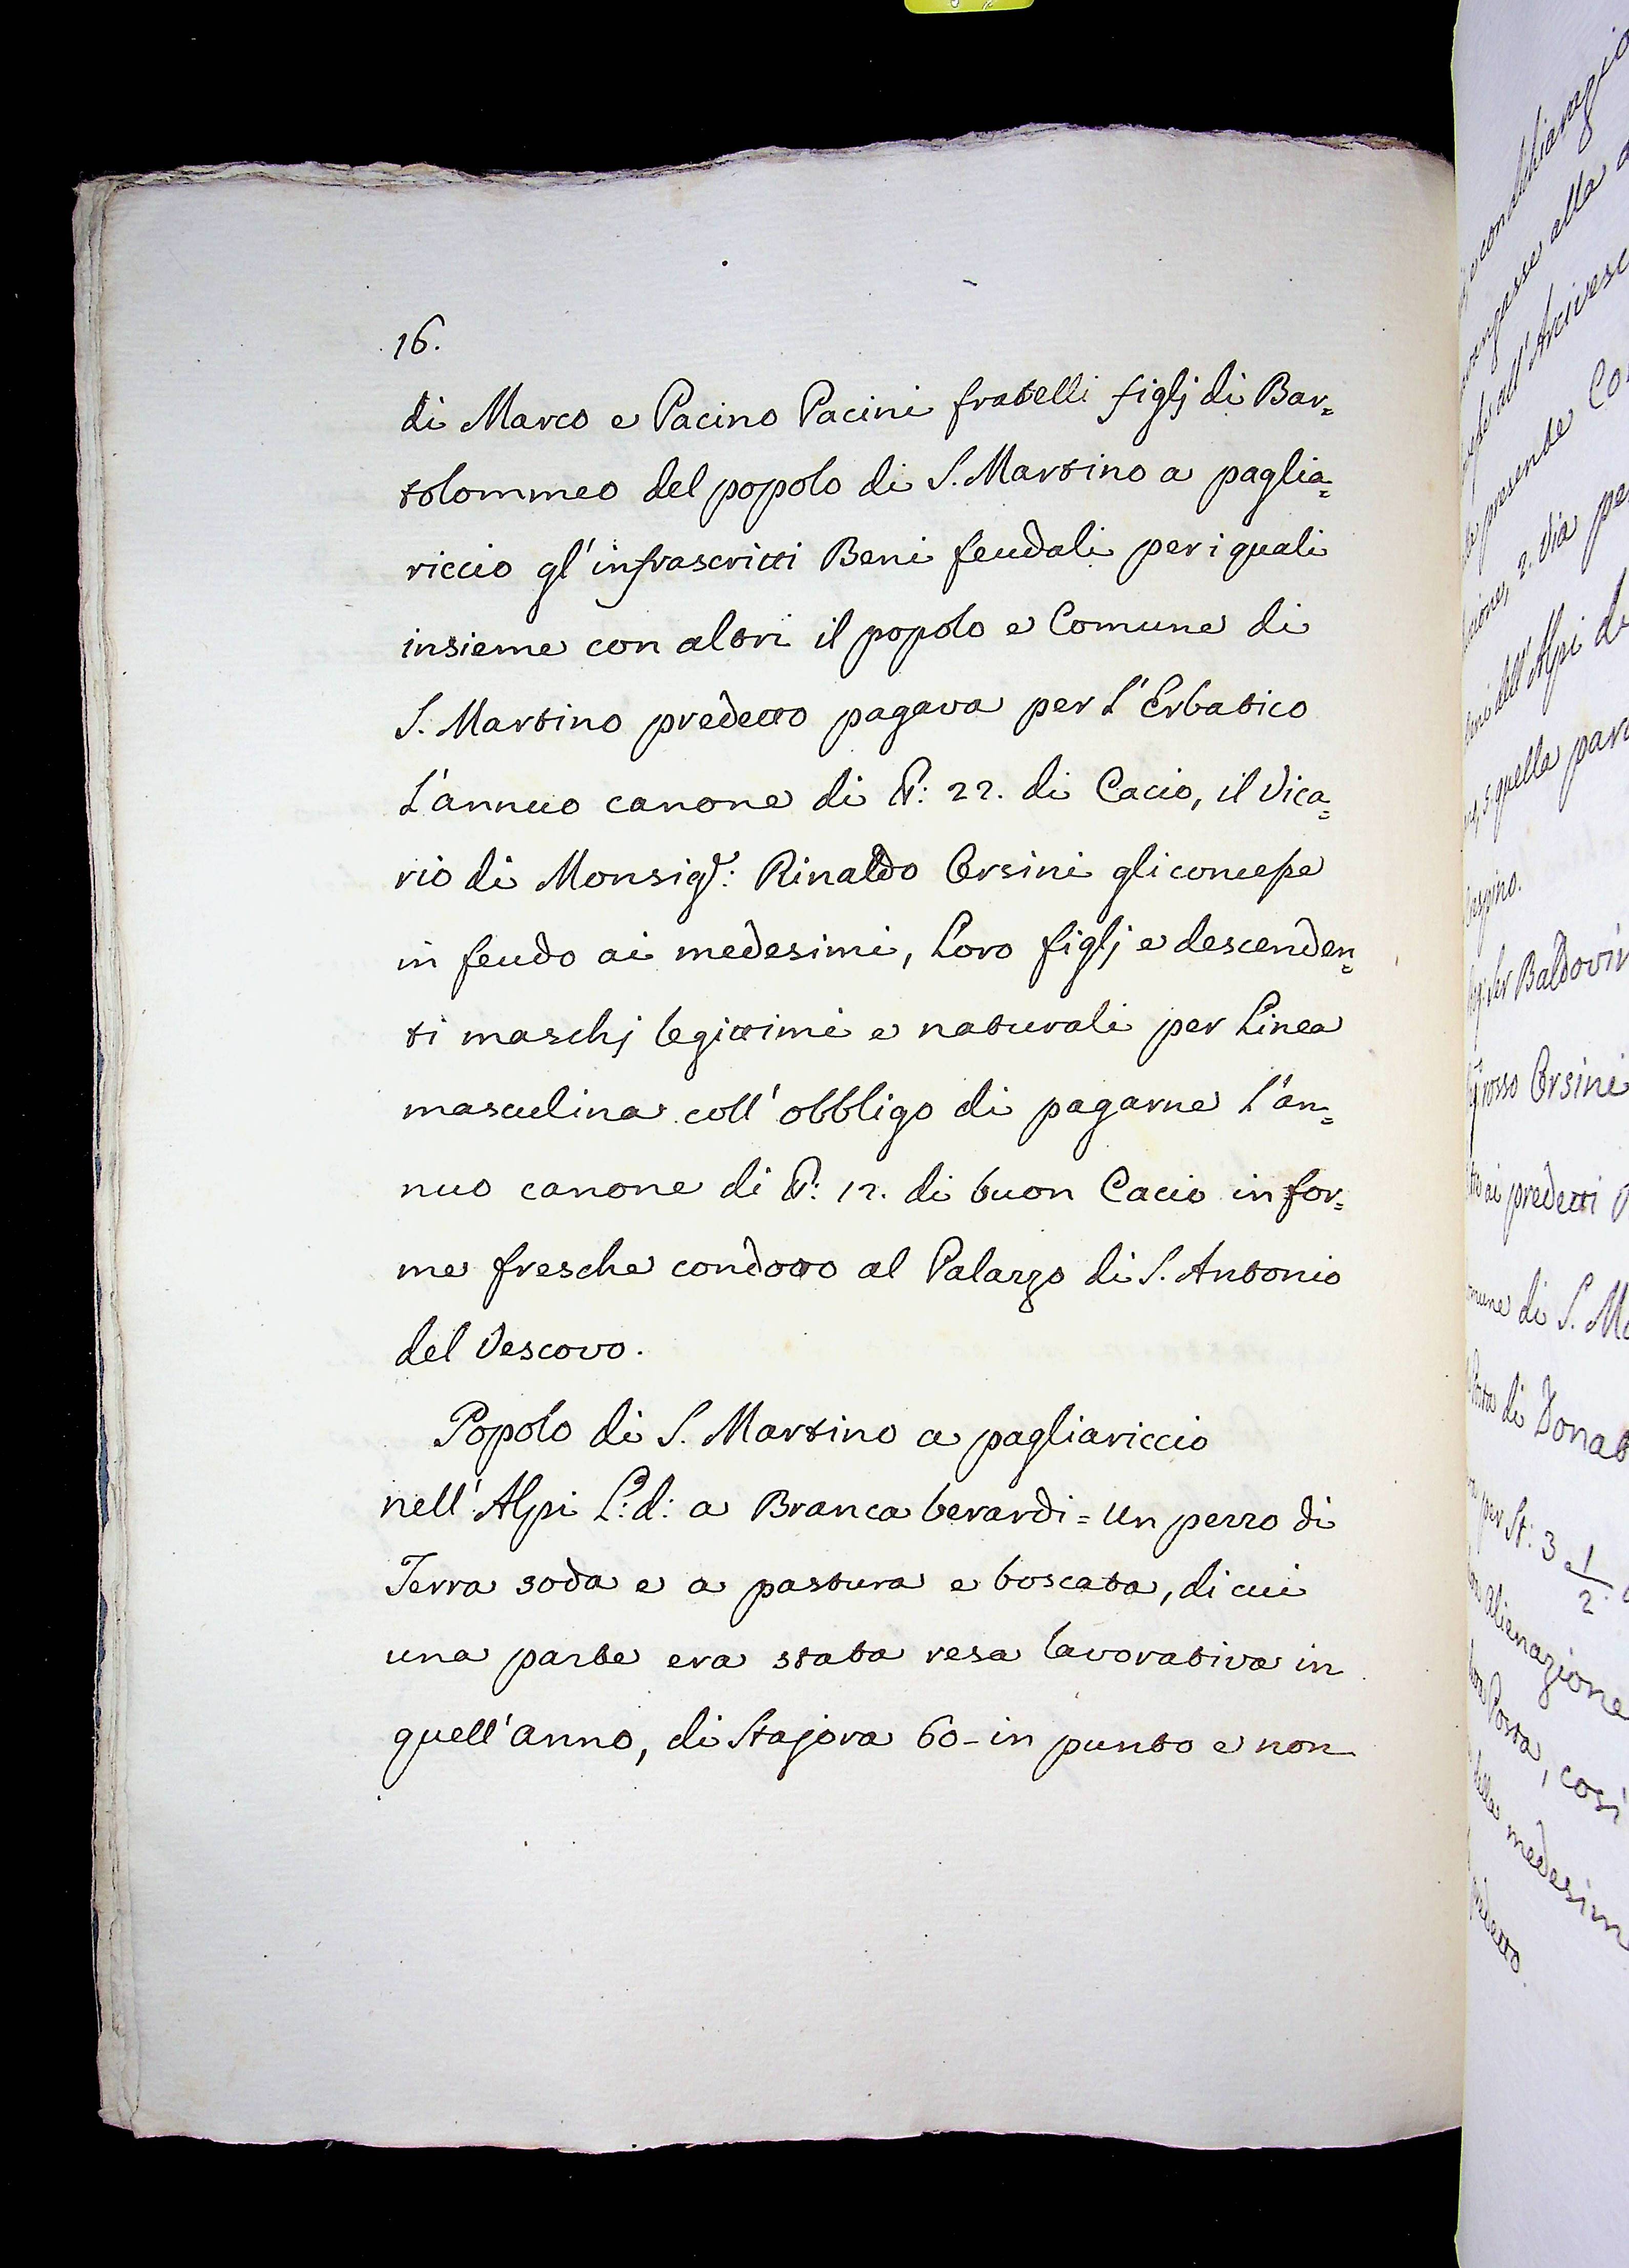 16.
di Marco e Pacino Pacini fratelli figlj di Bar=
tolommeo del popolo di S. Martino a paglia=
riccio gl'infrascritti Beni feudali per i quali
insieme con altri il popolo e Comune di
S. Martino predetto pagava per l'Erbatico
l'annuo canone di 22. di Cacio, il Vica=
rio di Monsig.r: Rinaldo Orsini gli concesse
in feudo ai medesimi, loro figlj e descenden=
ti maschj legittimi e naturali per linea
masculina coll'obbligo di pagarne l'an=
nuo canone di 12. di buon Cacio in for=
me fresche condotto al Palazzo di S. Antonio
del Vescovo.
Popolo di S. Martino a pagliariccio
nell'Alpi L.o: d: a Branca berardi = Un pezzo di
Terra soda e a pastura e boscata, di cui
una parte era stata resa lavorativa in
quell'anno, di Stajora 60 - in punto e non
alla
all'
presente
2. Via
dell'Alpi di
quella
Ser
Orsini
ai predetti
di S.
di
per St: 3 1/2
alienazione
Posta, così